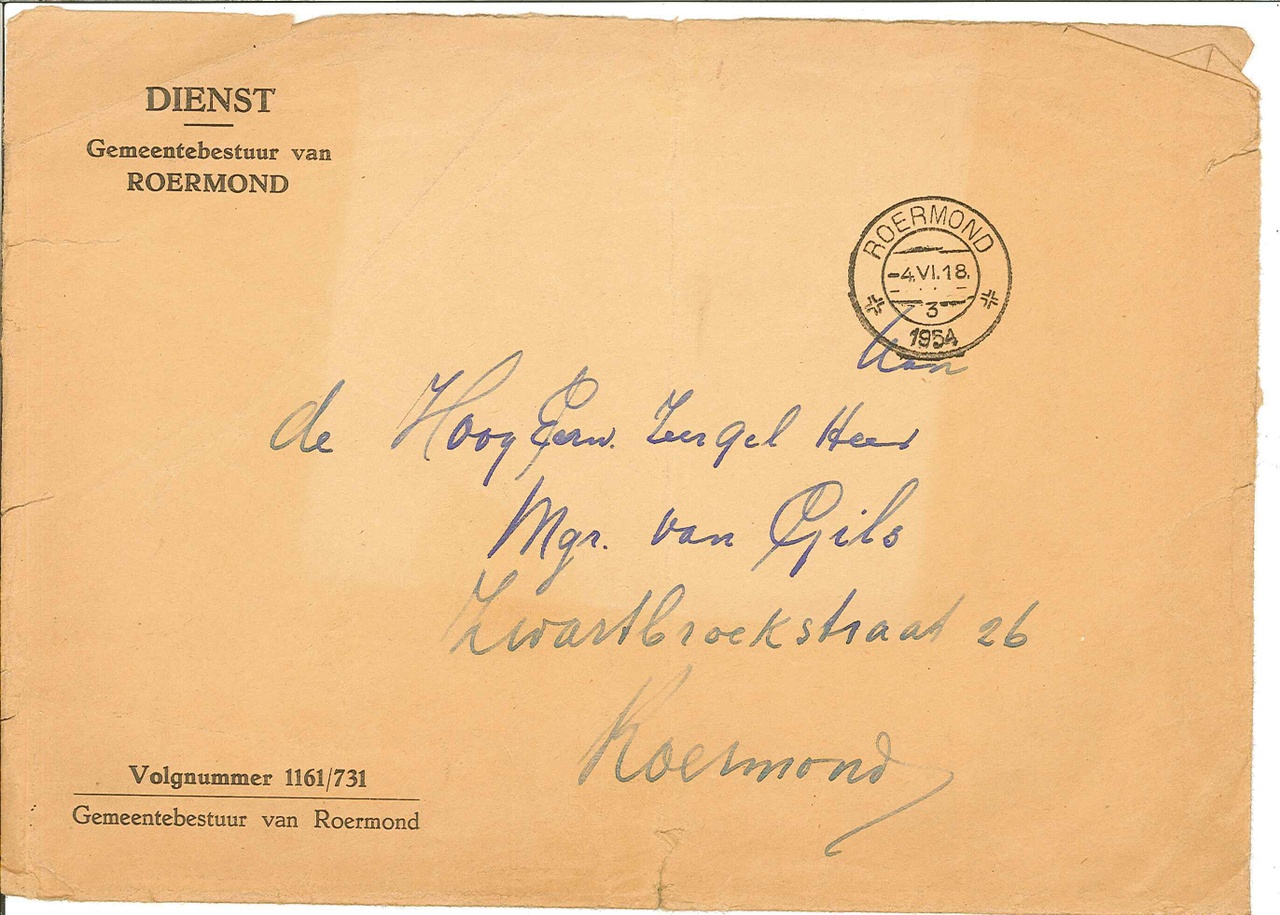 DIENST
Gemeentebestuur van
ROERMOND
ROERMOND
-4.VI.18.
3
1954
Aan
de Hoog Eerw. Zeergel Heer
Mgr. van Gils
Zwartbroekstraat 26
Roermond
Volgnummer 1161/731
Gemeentebestuur van Roermond